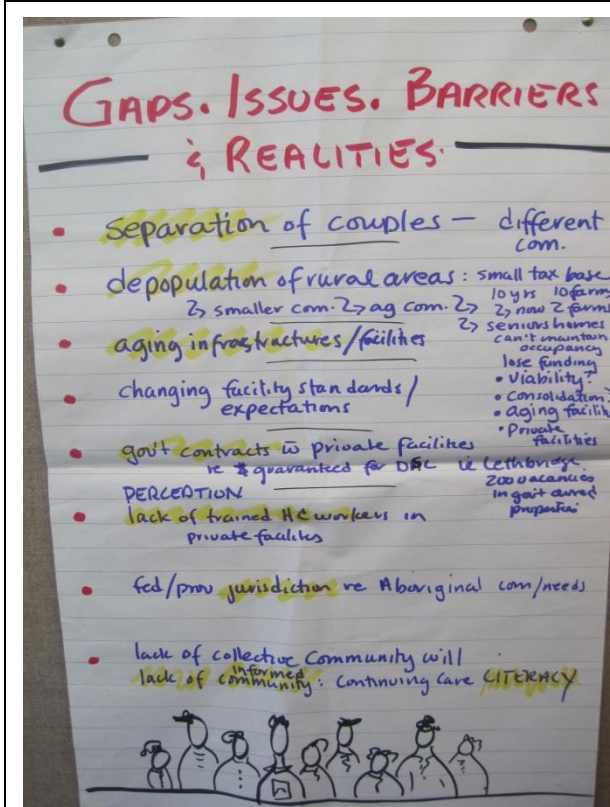 GAPS. ISSUES. BARRIERS
& REALITIES.
• separation of couples — different
com.
• depopulation of rural areas : small tax base
10 yrs 10 farms
↳ smaller com. ↳ ag com. ↳ ↳ now 2 farms
↳ seniors homes
can't maintain
occupancy
lose funding
• viability?
• consolidation?
• aging facilit
• Private
facilities
• aging infrastructures/facilities
• changing facility standards/
expectations
• gov't contracts w̄ private facilities
re $ guaranteed for ie Lethbridge
200 vacancies
in gov't owned
properties
PERCEPTION
• lack of trained HC workers in
private facilites
• fed/prov jurisdiction re Aboriginal com/needs
• lack of collective Community will
lack of informed community : Continuing Care LITERACY